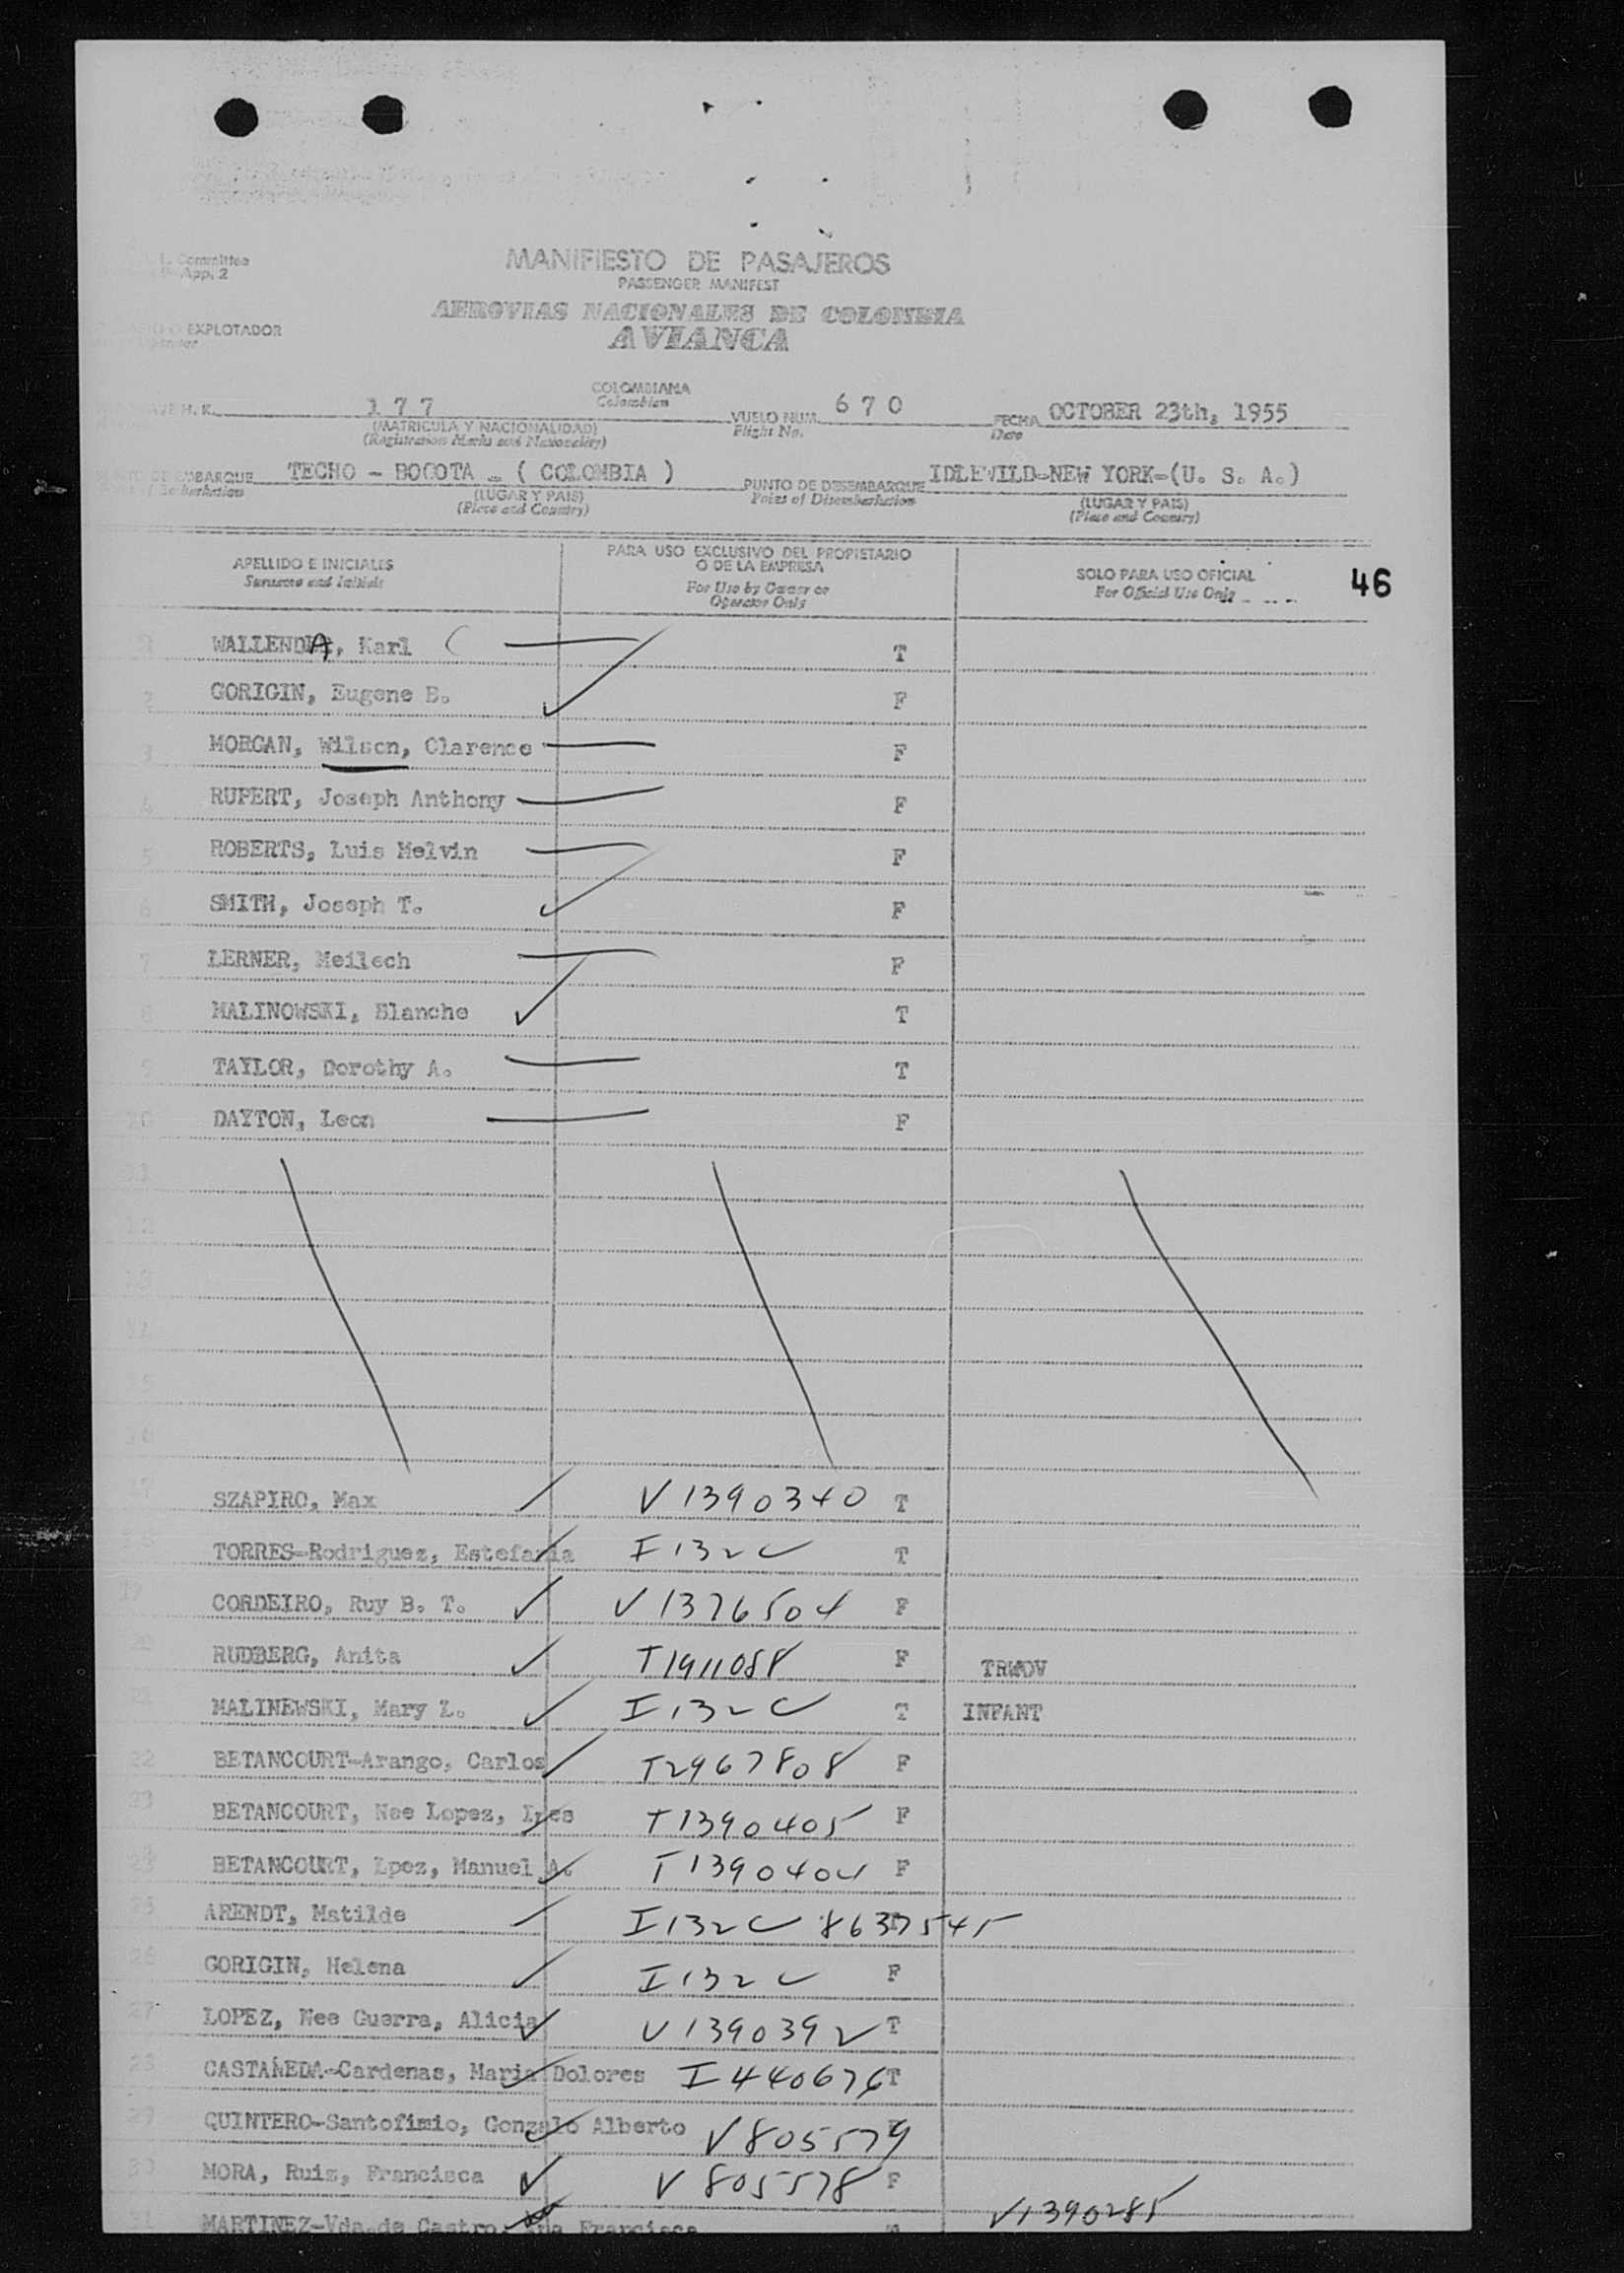 Committee
App. 2
MANIFIESTO DE PASAJEROS
PASSENGER MANIFEST
AEROVIAS NACIONALES DE COLOMBIA
AVIANCA
EXPLOTADOR
H. K. 177
COLOMBIANA
Colombian
(MATRICULA Y NACIONALIDAD)
(Registration Marks and Nationality)
VUELO NUM. 670
Flight No.
FECHA OCTOBER 23th, 1955
Date
EMBARQUE TECHO - BOGOTA - ( COLOMBIA )
Embarkation
(LUGAR Y PAIS)
(Place and Country)
PUNTO DE DESEMBARQUE IDLEWILD-NEW YORK-(U. S. A.)
Point of Disembarkation
(LUGAR Y PAIS)
(Place and Country)
APELLIDO E INICIALES
Surname and Initials
PARA USO EXCLUSIVO DEL PROPIETARIO
O DE LA EMPRESA
For Use by Owner or
Operator Only
SOLO PARA USO OFICIAL
For Official Use Only
46
WALLENDA, Karl T
2 GORIGIN, Eugene B. F
3 MORGAN, Wilson, Clarence F
4 RUPERT, Joseph Anthony F
5 ROBERTS, Luis Melvin F
6 SMITH, Joseph T. F
7 LERNER, Meilech F
8 MALINOWSKI, Blanche T
9 TAYLOR, Dorothy A. T
10 DAYTON, Leon F
11
12
13
15
SZAPIRO, Max V1390340 T
TORRES-Rodriguez, Estefania I132C T
19 CORDEIRO, Ruy B. T. V1376504 F
20 RUDBERG, Anita T1911088 F TRWOV
21 MALINEWSKI, Mary Z. I132C T INFANT
22 BETANCOURT-Arango, Carlos T2967808 F
23 BETANCOURT, Nee Lopez, Ines T1390405 F
BETANCOURT, Lpez, Manuel A. T1390404 F
25 ARENDT, Matilde I132C 8637545
26 GORIGIN, Helena I132C F
27 LOPEZ, Nee Guerra, Alicia V1390392 T
28 CASTAÑEDA-Cardenas, Maria Dolores I440676 T
29 QUINTERO-Santofimio, Gonzalo Alberto V805579
30 MORA, Ruiz, Francisca V805578 F
31 MARTINEZ-Vda.de Castro, Ana Francisca V1390285